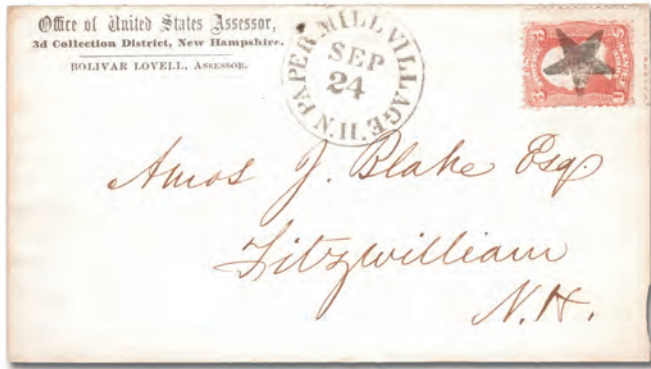 Office of United States Assessor,
3d Collection District, New Hampshire.
BOLIVAR LOVELL, Assessor.
PAPER MILL VILLAGE, N.H.
SEP
24
3 3
U S
Amos J. Blake Esq.
Fitzwilliam
N.H.